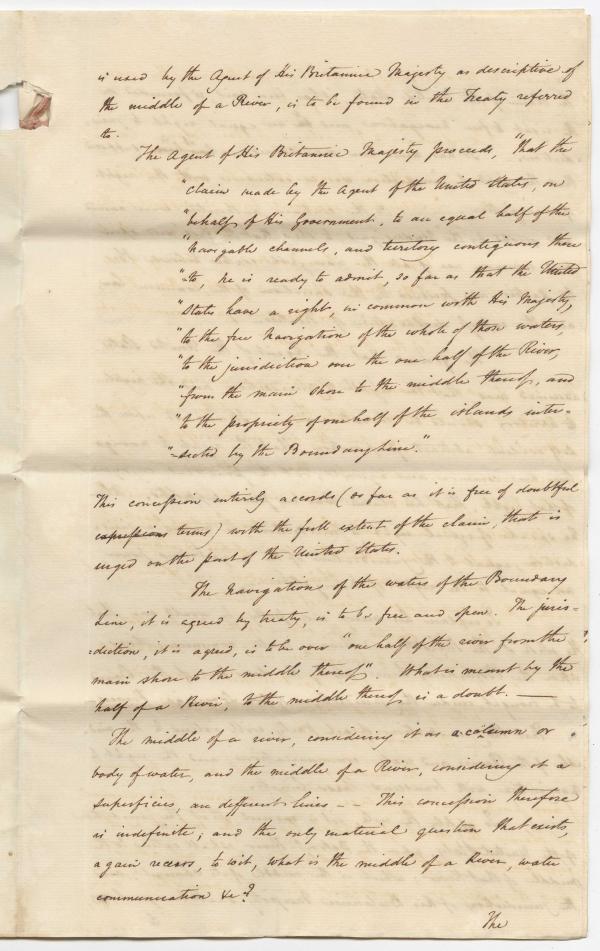 is used by the Agent of His Britannic Majesty as descriptive of
the middle of a River, is to be found in the Treaty referred
to.
The Agent of His Britannic Majesty proceeds, "that the
"claim made by the Agent of the United States, on
"behalf of His Government, to an equal half of the
"navigable channels, and territory contiguous there
"-to, he is ready to admit, so far as that the United
"States have a right, in common with His Majesty,
"to the free Navigation of the whole of those waters,
"to the jurisdiction over the one half of the River,
"from the main shore to the middle thereof, and
"to the propriety of one half of the islands inter-
"-sected by the Boundary line."
This concession entirely accords (so far as it is free of doubtful
expressions terms) with the full extent of the claim, that is
urged on the part of the United States.
The Navigation of the waters of the Boundary
Line, it is agreed by treaty, is to be free and open. The juris-
-diction, it is agreed, is to be over "one half of the river from the
main shore to the middle thereof". What is meant by the
half of a River, to the middle thereof is a doubt. —
The middle of a river, considering it as a column or
body of water, and the middle of a River, considering it a
superficies, are different lines -- This concession therefore
is indefinite; and the only material question that exists,
again recurs, to wit, what is the middle of a River, water
communication &c?
The